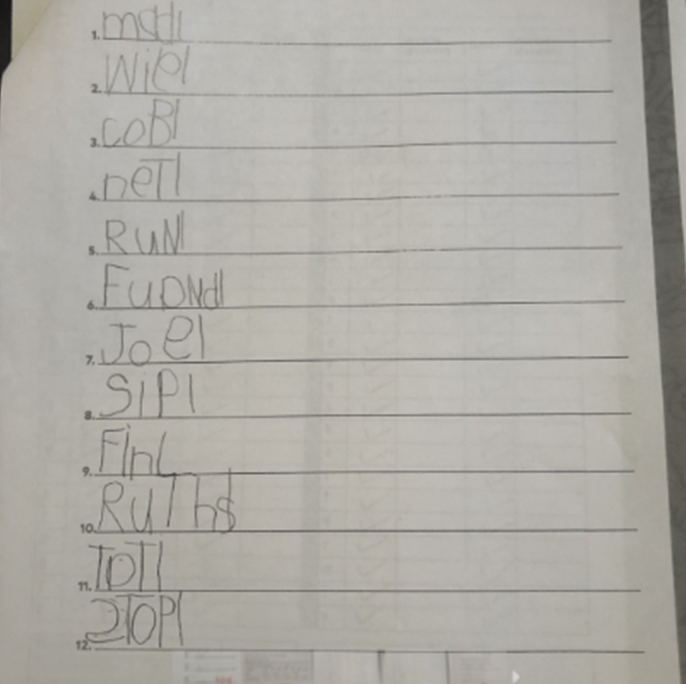 1. madl
2. Wipl
3. coBl
4. neTl
5. RuNl
6. FuoNdl
7. Joel
8. SiPl
9. FinL
10. RuThs
11. ToTl
12. STOPl